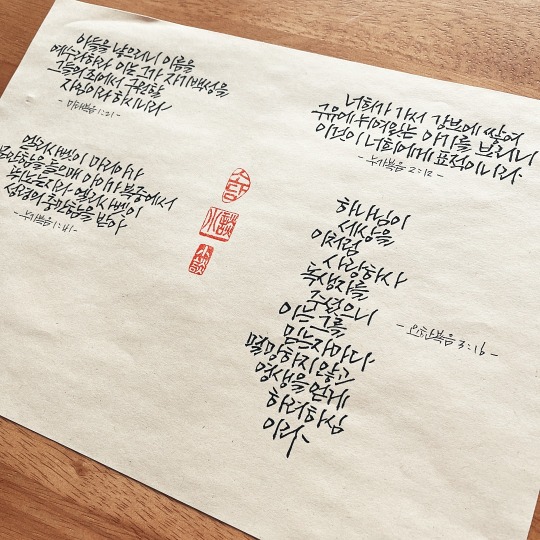 아들을 낳으리니 이름을
예수라하라 이는 그가 자기백성을
그들의 죄에서 구원할
하시니라
- 마태복음 1:21 -
엘리사벳이 마리아가
문안함을 들으매 아이가 복중에서
뛰노는지라 엘리사벳이
성령의 충만함을 받아
- 누가복음 1:41 -
소담
너희가 가서 강보에 쌓여
구유에 뉘어있는 아기를 보리니
이것이 너희에게 표적이니라.
- 누가복음 2:12 -
하나님이
세상을
이처럼
사랑하사
독생자를
주셨으니
이는 그를
믿는자마다
멸망하지 않고
영생을 얻게
하려하심
이라.
- 요한복음 3:16 -